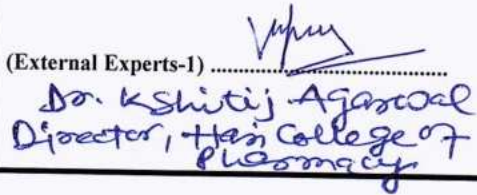 (External Experts-1) ........................................
Dr. Kshitij Agarwal
Director, Hari College of
Pharmacy